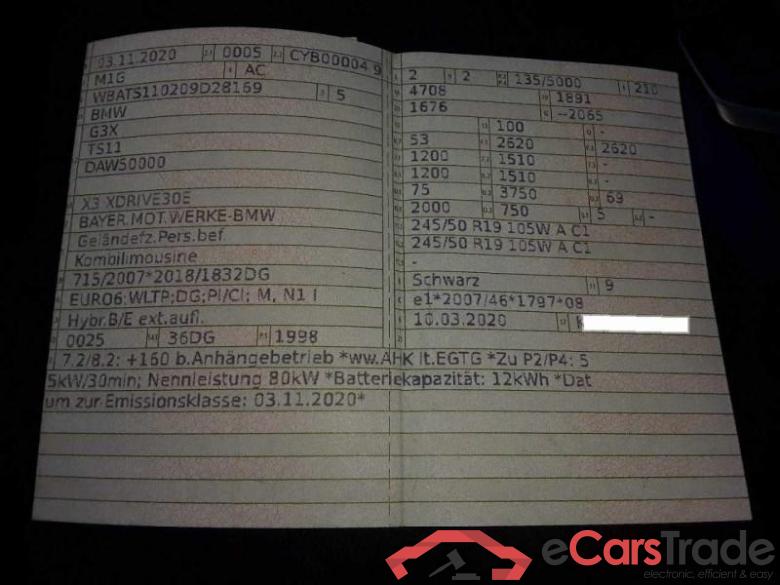 03.11.2020 0005 CYB00004 9
M1G AC
WBATS110209D28169 5
BMW
G3X
TS11
DAW50000
X3 XDRIVE30E
BAYER.MOT.WERKE-BMW
Geländefz.Pers.bef.
Kombilimousine
715/2007*2018/1832DG
EURO6;WLTP;DG;PI/CI; M, N1 I
Hybr.B/E ext.aufl.
0025 36DG 1998
2 2 135/5000 210
4708 1891
1676 --2065
100 -
53 2620 2620
1200 1510 -
1200 1510 -
75 3750 69
2000 750 5 -
245/50 R19 105W A C1
245/50 R19 105W A C1
-
Schwarz 9
e1*2007/46*1797*08
10.03.2020
7.2/8.2: +160 b.Anhängebetrieb *ww.AHK lt.EGTG *Zu P2/P4: 5
5kW/30min; Nennleistung 80kW *Batteriekapazität: 12kWh *Dat
um zur Emissionsklasse: 03.11.2020*
eCarsTrade
electronic, efficient & easy